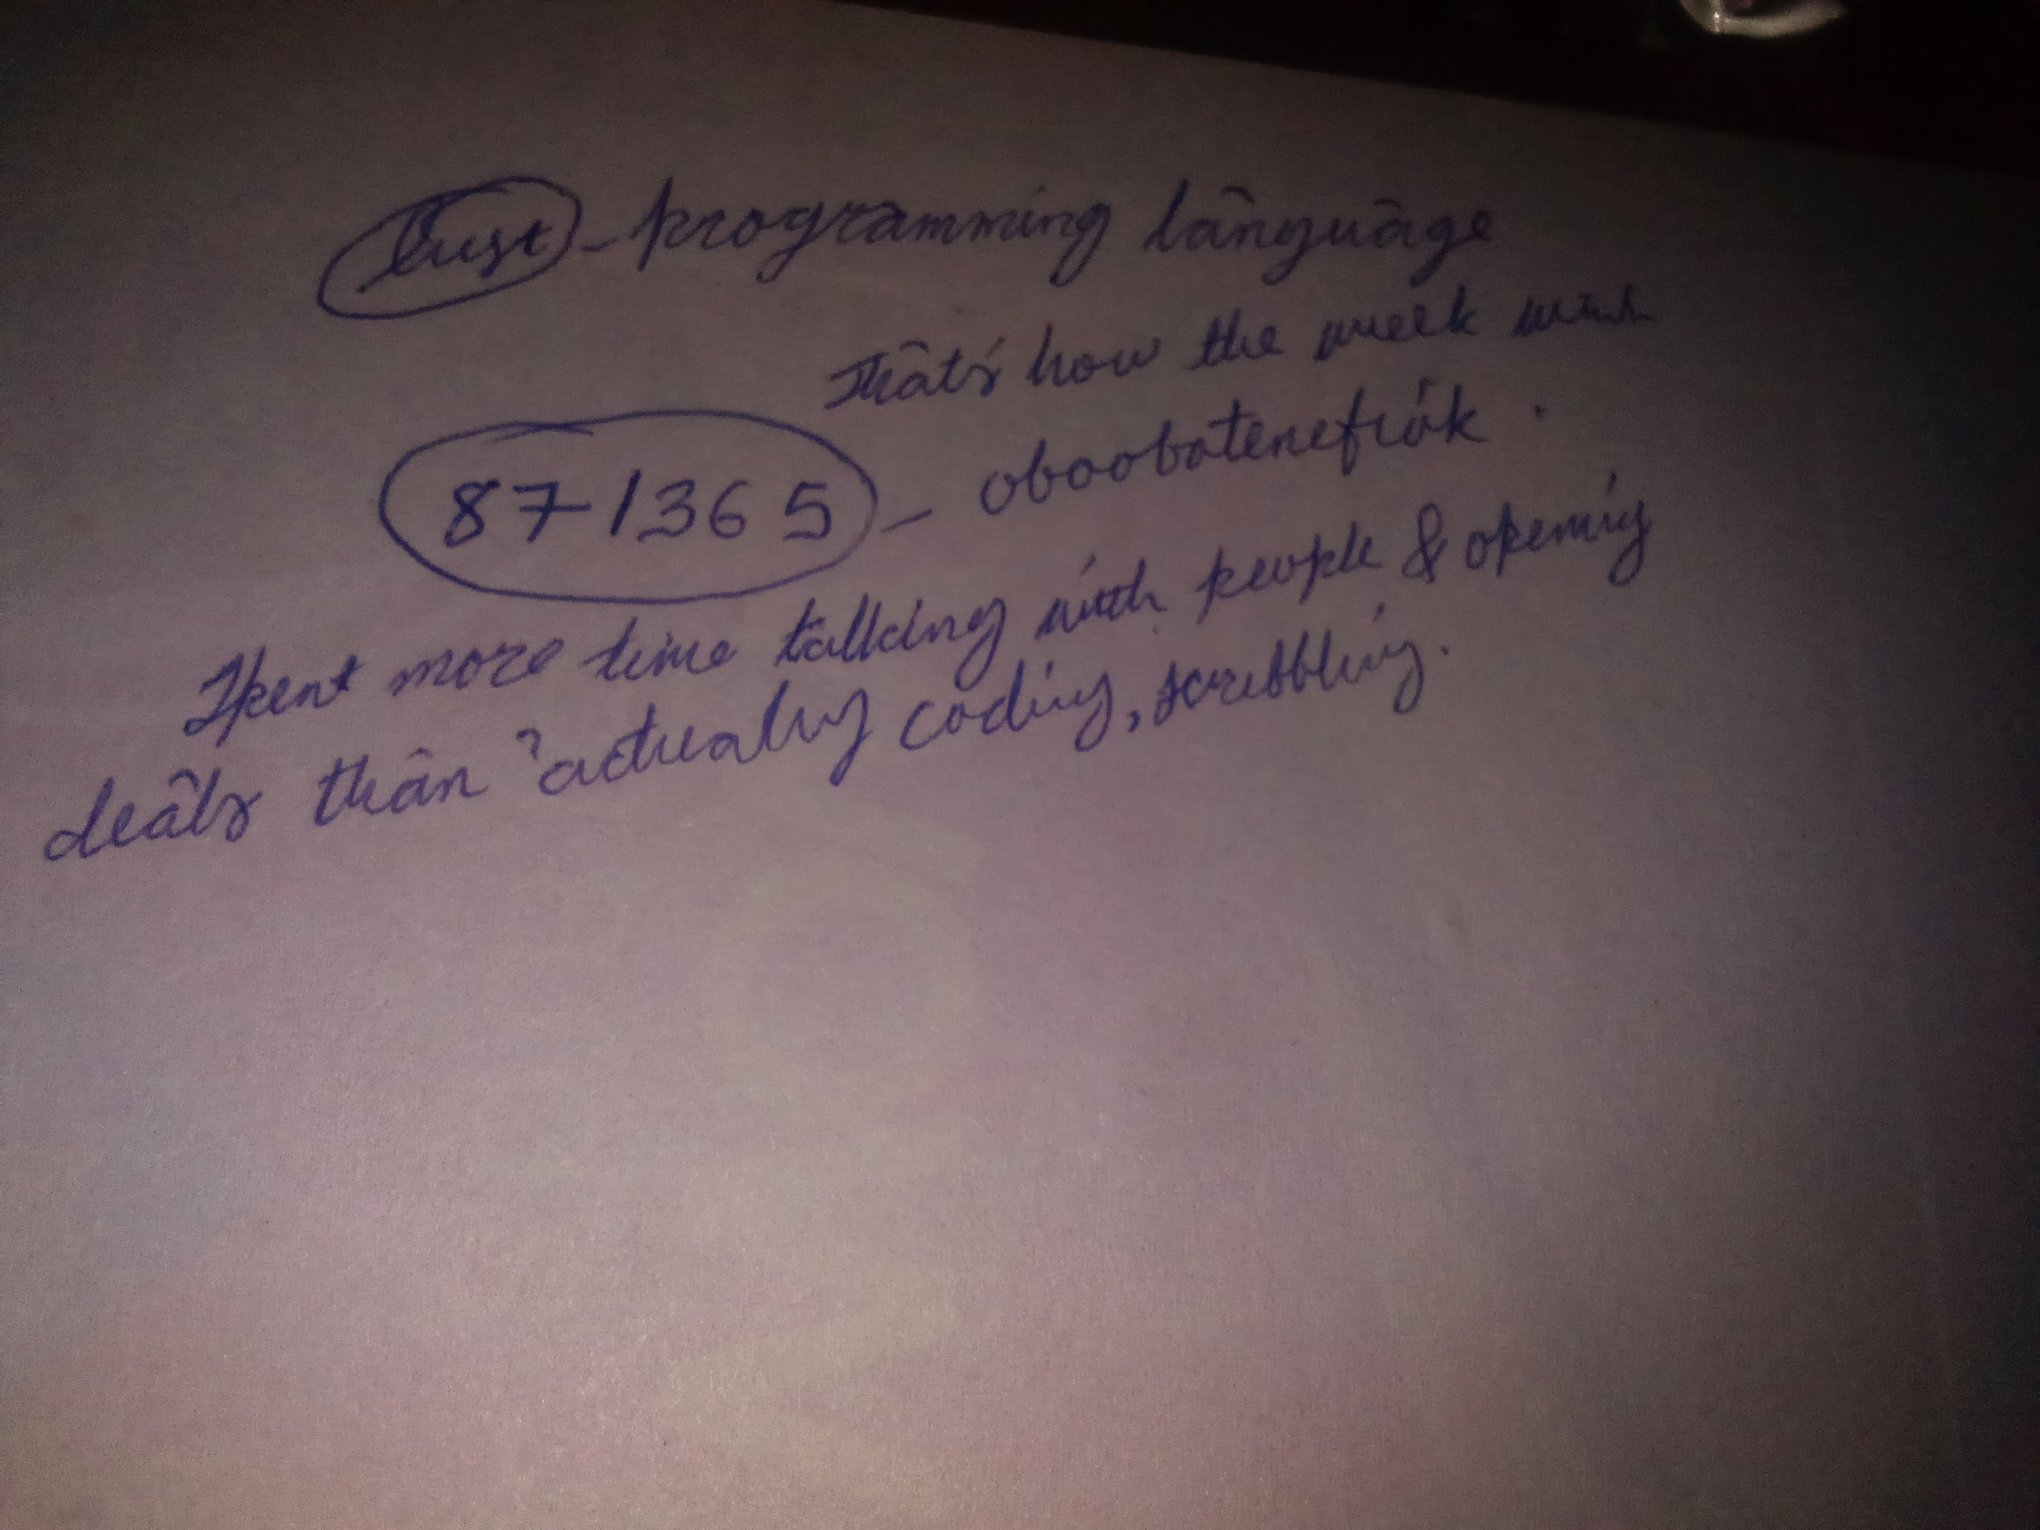 Rust - programming language
That's how the week went
871365 - oboobotenefiok.
Spent more time talking with people & opening
deals than actually coding, scribbling.